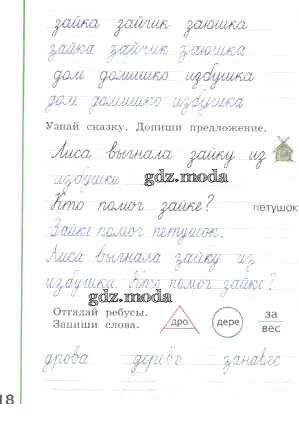 зайка зайчик заюшка
зайка зайчик заюшка
дом домишко избушка
дом домишко избушка
Узнай сказку. Допиши предложение.
Лиса выгнала зайку из
избушки.
gdz.moda
Кто помог зайке? петушок
Зайке помог петушок.
Лиса выгнала зайку из
избушки. Кто помог зайке?
gdz.moda
Отгадай ребусы.
Запиши слова.
дро
дере
за
вес
дрова дерево занавес
18